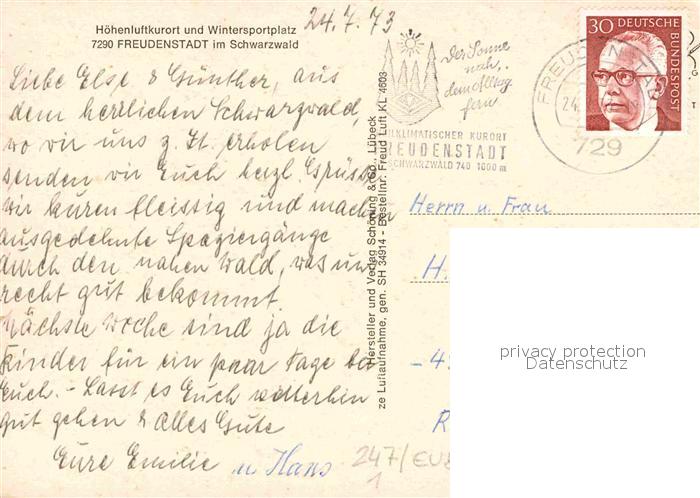 24.7.73
Höhenluftkurort und Wintersportplatz
7290 FREUDENSTADT im Schwarzwald
Liebe Else & Günther, aus
dem herrlichen Schwarzwald,
wo wir uns z. Zt. erholen
senden wir Euch herzl. Grüsse
Wir kuren fleissig und machen
ausgedehnte Spaziergänge
durch den nahen Wald, was uns
recht gut bekommt.
Nächste Woche sind ja die
Kinder für ein paar Tage bei
Euch. - Lasst es Euch weiterhin
gut gehen & alles Gute
Eure Emilie u Hans
Hersteller und Verlag Schöning & Co., Lübeck
ze Luftaufnahme, gen. SH 34914 - Bestellnr. Freud Luft KL 4603
Der Sonne
nah,
dem Alltag
fern
KLIMATISCHER KURORT
FREUDENSTADT
SCHWARZWALD 740 1000 m
FREUDENSTA
24.
729
30 DEUTSCHE
BUNDESPOST
Herrn u. Frau
H
- 4
R
privacy protection
Datenschutz
247/EU
1